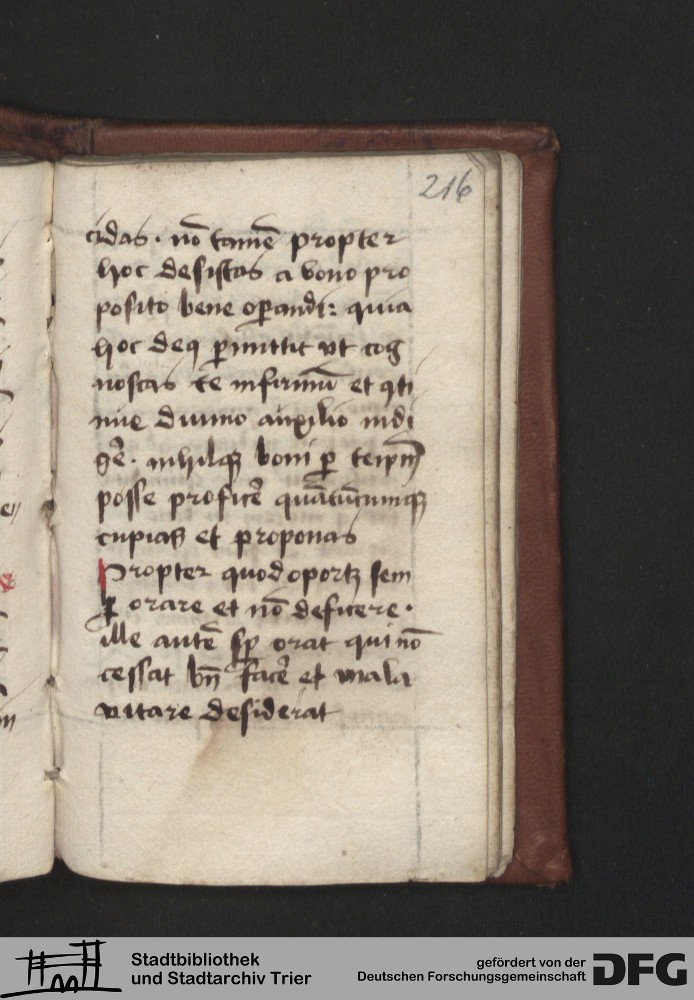 216
cidas · nō tamē propter
hoc desistas a bono pro
posito bene oꝑandi: quia
hoc deꝰ ꝑmittit vt cog
noscas te infirmū et ꝯti
nue diuino auxilio indi
gēˀ · nihilqꝫ boni ꝑ teipm̄
posse proficēˀ quātūcumqꝫ
cupias et proponas
Propter quod oportꝫ sem
ꝑ orare et nō deficere ·
ille autē sp̄ orat qui nō
cessat bn̄ facēˀ et mala
vitare desiderat
Stadtbibliothek
und Stadtarchiv Trier
gefördert von der
Deutschen Forschungsgemeinschaft
DFG